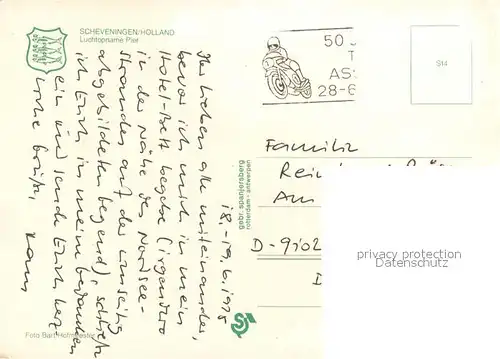 SCHEVENINGEN/HOLLAND
Luchtopname Pier
18.-19.6.1975
Ihr Lieben alle miteinander,
bevor ich mich in mein
Hotel-Bett begebe (irgendwo
in der Nähe des Nordsee-
Strandes auf der umseitig
abgebildeten Gegend), schließe
ich Euch in mein Gedanken
ein und sende Euch herz-
liche Grüße,
Hans
Foto Bart Hofmeester
gebr. spanjersberg
rotterdam - antwerpen
50 J
T
ASS
28-6
S14
Familie
Am
D-9102
privacy protection
Datenschutz